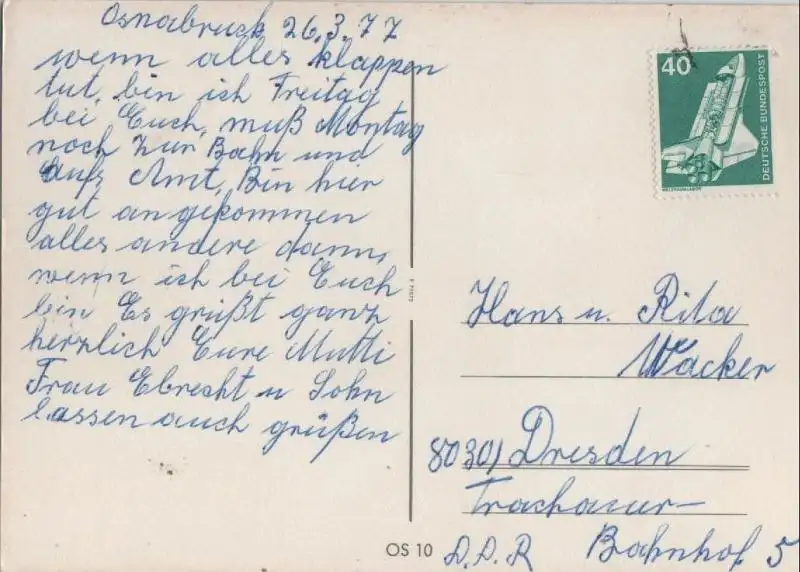 Osnabruck 26.3.77
wenn alles klappen
tut, bin ich Freitag
bei Euch, muß Montag
noch zur Bahn und
Aufs Amt, Bin hier
gut angekommen
alles andere dann,
wenn ich bei Euch
bin Es grüßt ganz
herzlich Eure Mutti
Frau Ebrecht u Sohn
lassen auch grüßen
40
DEUTSCHE BUNDESPOST
WELTRAUMLABOR
Hans u. Rita
Wacker
8030/Dresden
Trachauer-
Bahnhof 5
D.D.R
OS 10